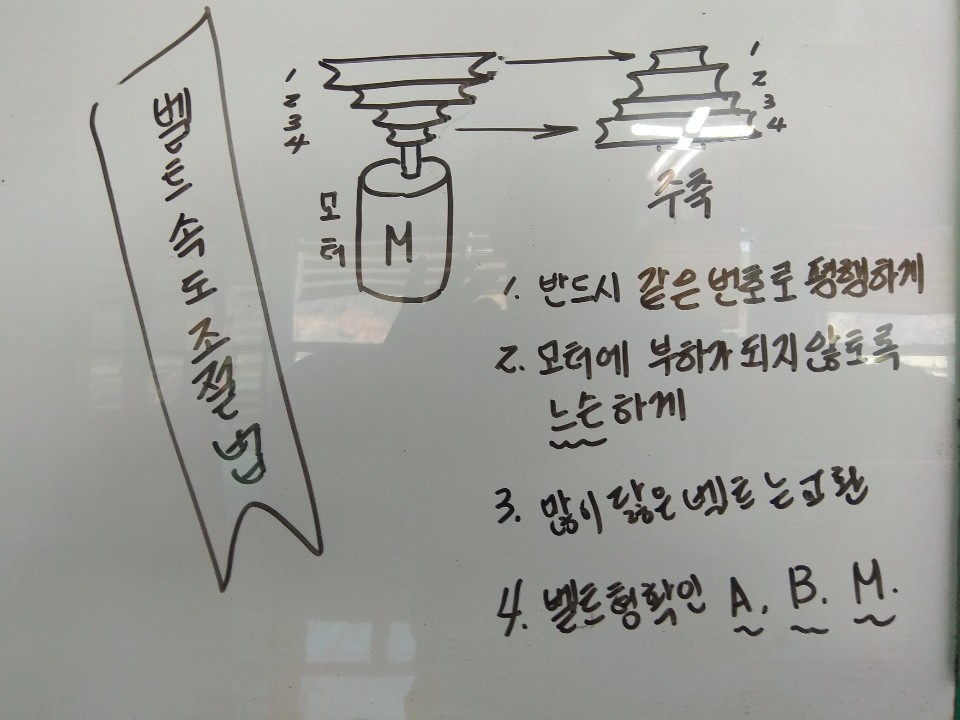 벨트속도조절법
1
2
3
4
모터
M
1
2
3
4
주축
1. 반드시 같은번호로 평행하게
2. 모터에 부하가 되지않토록
느슨하게
3. 많이 닳은 벨트는교환
4. 벨트형확인 A. B. M.